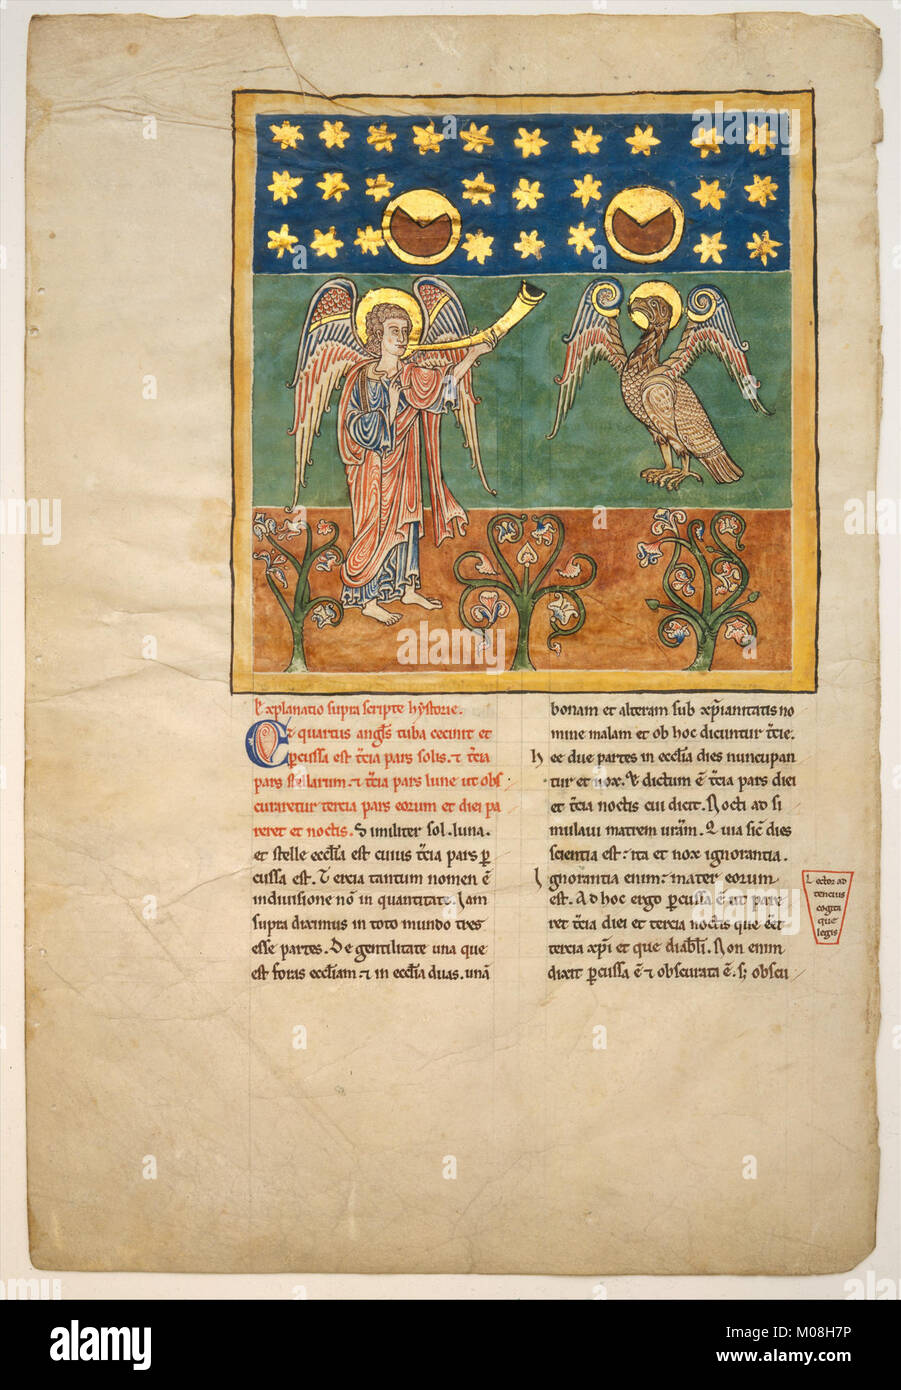 Explanatio supra scripte hystorie.
Et quartus angls tuba cecinit et
pcussa est tcia pars solis. et tcia
pars stellarum. et tcia pars lune ut obs
curaretur tercia pars eorum et diei pa
reret et noctis. Similiter sol. luna.
et stelle ecclia est cuius tcia pars p
cussa est. Tercia tantum nomen ē
indiuisione nō in quantitate. Iam
supra diximus in toto mundo tres
esse partes. De gentilitate una que
est foras eccliam. et in ecclia duas. unā
bonam et alteram sub xpianitatis no
mine malam et ob hoc dicuntur tcie.
hee due partes in ecclia dies nuncupan
tur et nox. dictum ē tcia pars diei
et tcia noctis cui dicit. Nocti ad si
mulaui matrem uram. Quia sic dies
scientia est. ita et nox ignorantia.
Ignorantia enim mater eorum
est. Ad hoc ergo pcussa ē ut pare
ret tcia diei et tercia noctis que
tercia xpi et que diabli. Non enim
dixit pcussa ē et obscurata ē. s; obscu
Lector ad
tencius
cogita
que
legis
alamy
Image ID: M08H7P
www.alamy.com